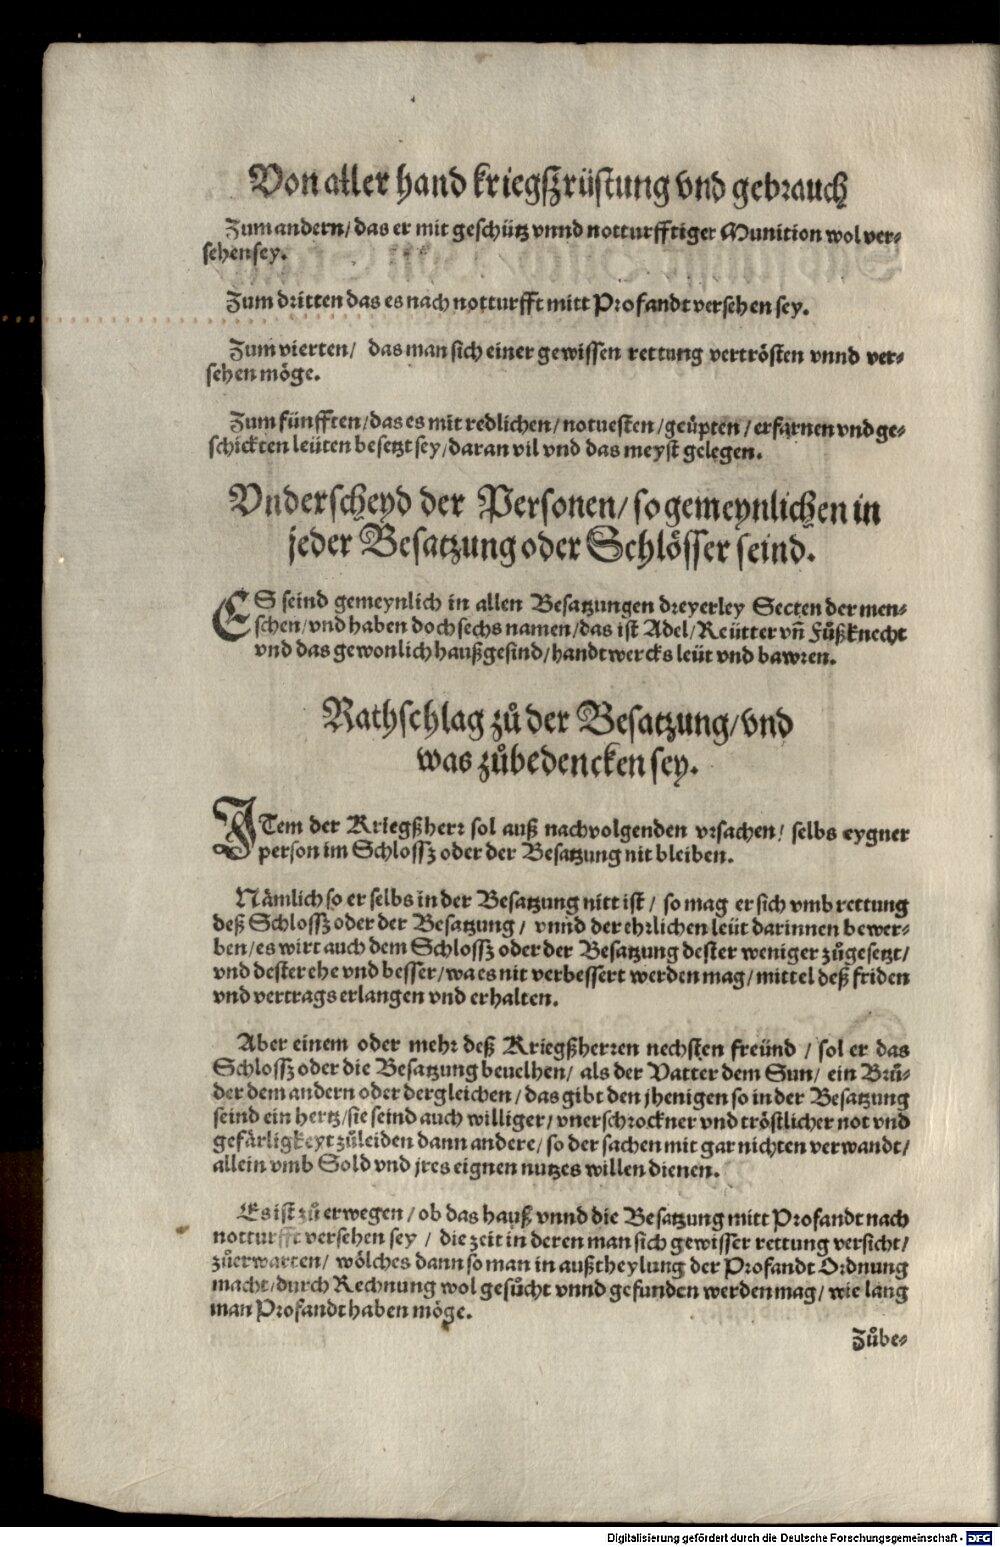 Von aller hand kriegsßrüstung vnd gebrauch
Zum andern/ das er mit geschütz vnnd notturfftiger Munition wol ver-
sehen sey.
Zum dritten das es nach notturfft mitt Profandt versehen sey.
Zum vierten/ das man sich einer gewissen rettung vertrösten vnnd ver-
sehen möge.
Zum fünfften/ das es mit redlichen/ notuesten/ geüpten/ erfarnen vnd ge-
schickten leüten besetzt sey/ daran vil vnd das meyst gelegen.
Vnderscheyd der Personen/ so gemeynlichen in
jeder Besatzung oder Schlösser seind.
ES seind gemeynlich in allen Besatzungen dreyerley Secten der men-
schen/ vnd haben doch sechs namen/ das ist Adel/ Reütter vñ Fůßknecht
vnd das gewonlich haußgesind/ handtwercks leüt vnd bawren.
Rathschlag zů der Besatzung/ vnd
was zůbedencken sey.
ITem der Kriegßherr sol auß nachvolgenden vrsachen/ selbs eygner
person im Schlossz oder der Besatzung nit bleiben.
Nämlich so er selbs in der Besatzung nitt ist/ so mag er sich vmb rettung
deß Schlossz oder der Besatzung/ vnnd der ehrlichen leüt darinnen bewer-
ben/ es wirt auch dem Schlossz oder der Besatzung dester weniger zůgesetzt/
vnd dester ehe vnd besser/ wa es nit verbessert werden mag/ mittel deß friden
vnd vertrags erlangen vnd erhalten.
Aber einem oder mehr deß Kriegßherren nechsten freünd/ sol er das
Schlossz oder die Besatzung beuelhen/ als der Vatter dem Sun/ ein Brů-
der dem andern oder dergleichen/ das gibt den jhenigen so in der Besatzung
seind ein hertz/ sie seind auch williger/ vnerschrockner vnd tröstlicher not vnd
gefärligkeyt zůleiden dann andere/ so der sachen mit gar nichten verwandt/
allein vmb Sold vnd jres eignen nutzes willen dienen.
Es ist zů erwegen/ ob das hauß vnnd die Besatzung mitt Profandt nach
notturfft versehen sey/ die zeit in deren man sich gewisser rettung versicht/
zůerwarten/ wölches dann so man in außtheylung der Profandt Ordnung
macht/ durch Rechnung wol gesůcht vnnd gefunden werden mag/ wie lang
man Profandt haben möge.
Zůbe-
Digitalisierung gefördert durch die Deutsche Forschungsgemeinschaft - DFG